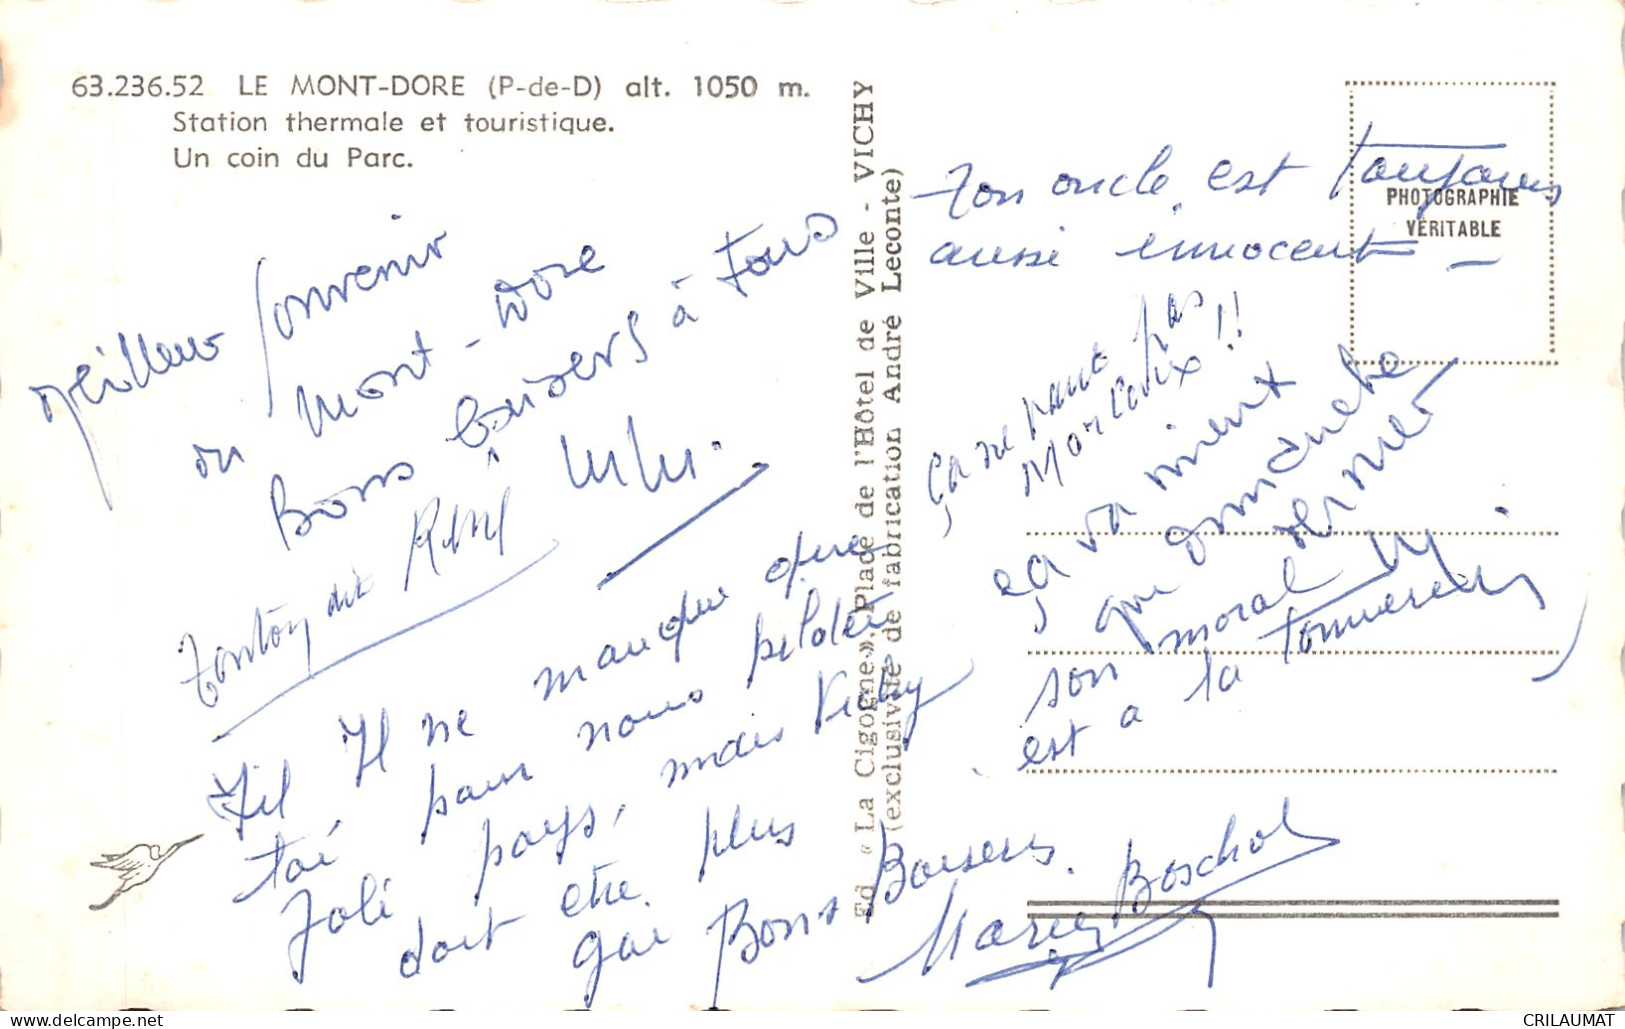 63.236.52 LE MONT-DORE (P-de-D) alt. 1050 m.
Station thermale et touristique.
Un coin du Parc.
Meilleur Souvenir
du Mont-Dore
Bons baisers à tous
Lulu.
Tonton dit René
Il ne manque que
toi pour nous piloter
Joli pays, mais Vichy
doit être plus
gai Bons Baisers.
Marie Boschol
Ed. « La Cigogne », Place de l'Hôtel de Ville - VICHY
(exclusivité de fabrication André Leconte)
PHOTOGRAPHIE
VÉRITABLE
Ton oncle est toujours
aussi innocent -
ça ne vaut pas
Morceix !!
ça va mieux
que dimanche
dernier
son moral
est à la
CRILAUMAT